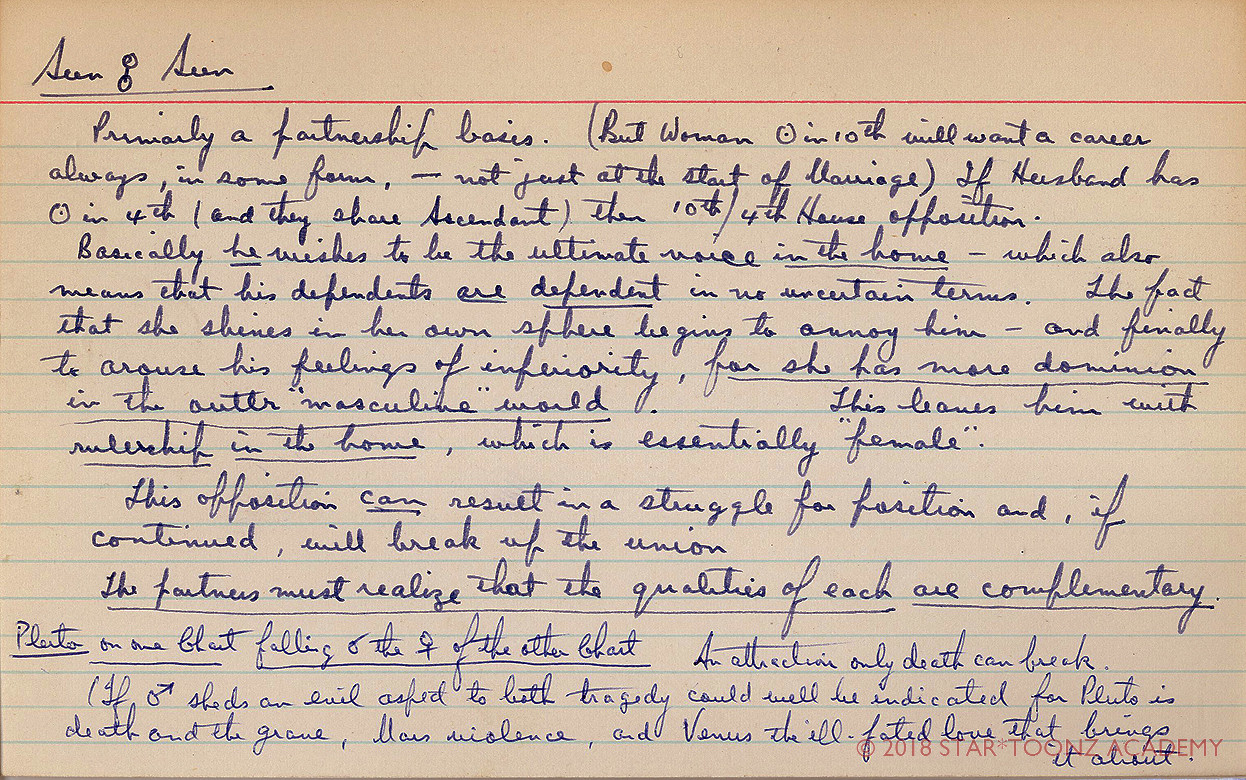 Sun ☍ Sun
Primarly a partnership basis. (But Woman ☉ in 10th will want a career
always, in some form, — not just at the start of Marriage) If Husband has
☉ in 4th (and they share Ascendant) then 10th/4th House opposition.
Basically he wishes to be the ultimate voice in the home – which also
means that his dependents are dependent in no uncertain terms. The fact
that she shines in her own sphere begins to annoy him – and finally
to arouse his feelings of inferiority, for she has more dominion
in the outer "masculine" world. This leaves him with
rulership in the home, which is essentially "female".
This opposition can result in a struggle for position and, if
continued, will break up the union
The partners must realize that the qualities of each are complementary.
Pluto on one Chart falling ☌ the ♀ of the other Chart An attraction only death can break.
(If ♂ sheds an evil aspect to both tragedy could well be indicated for Pluto is
death and the grave, Mars violence, and Venus the ill-fated love that brings
it about.
© 2018 STAR*TOONZ ACADEMY